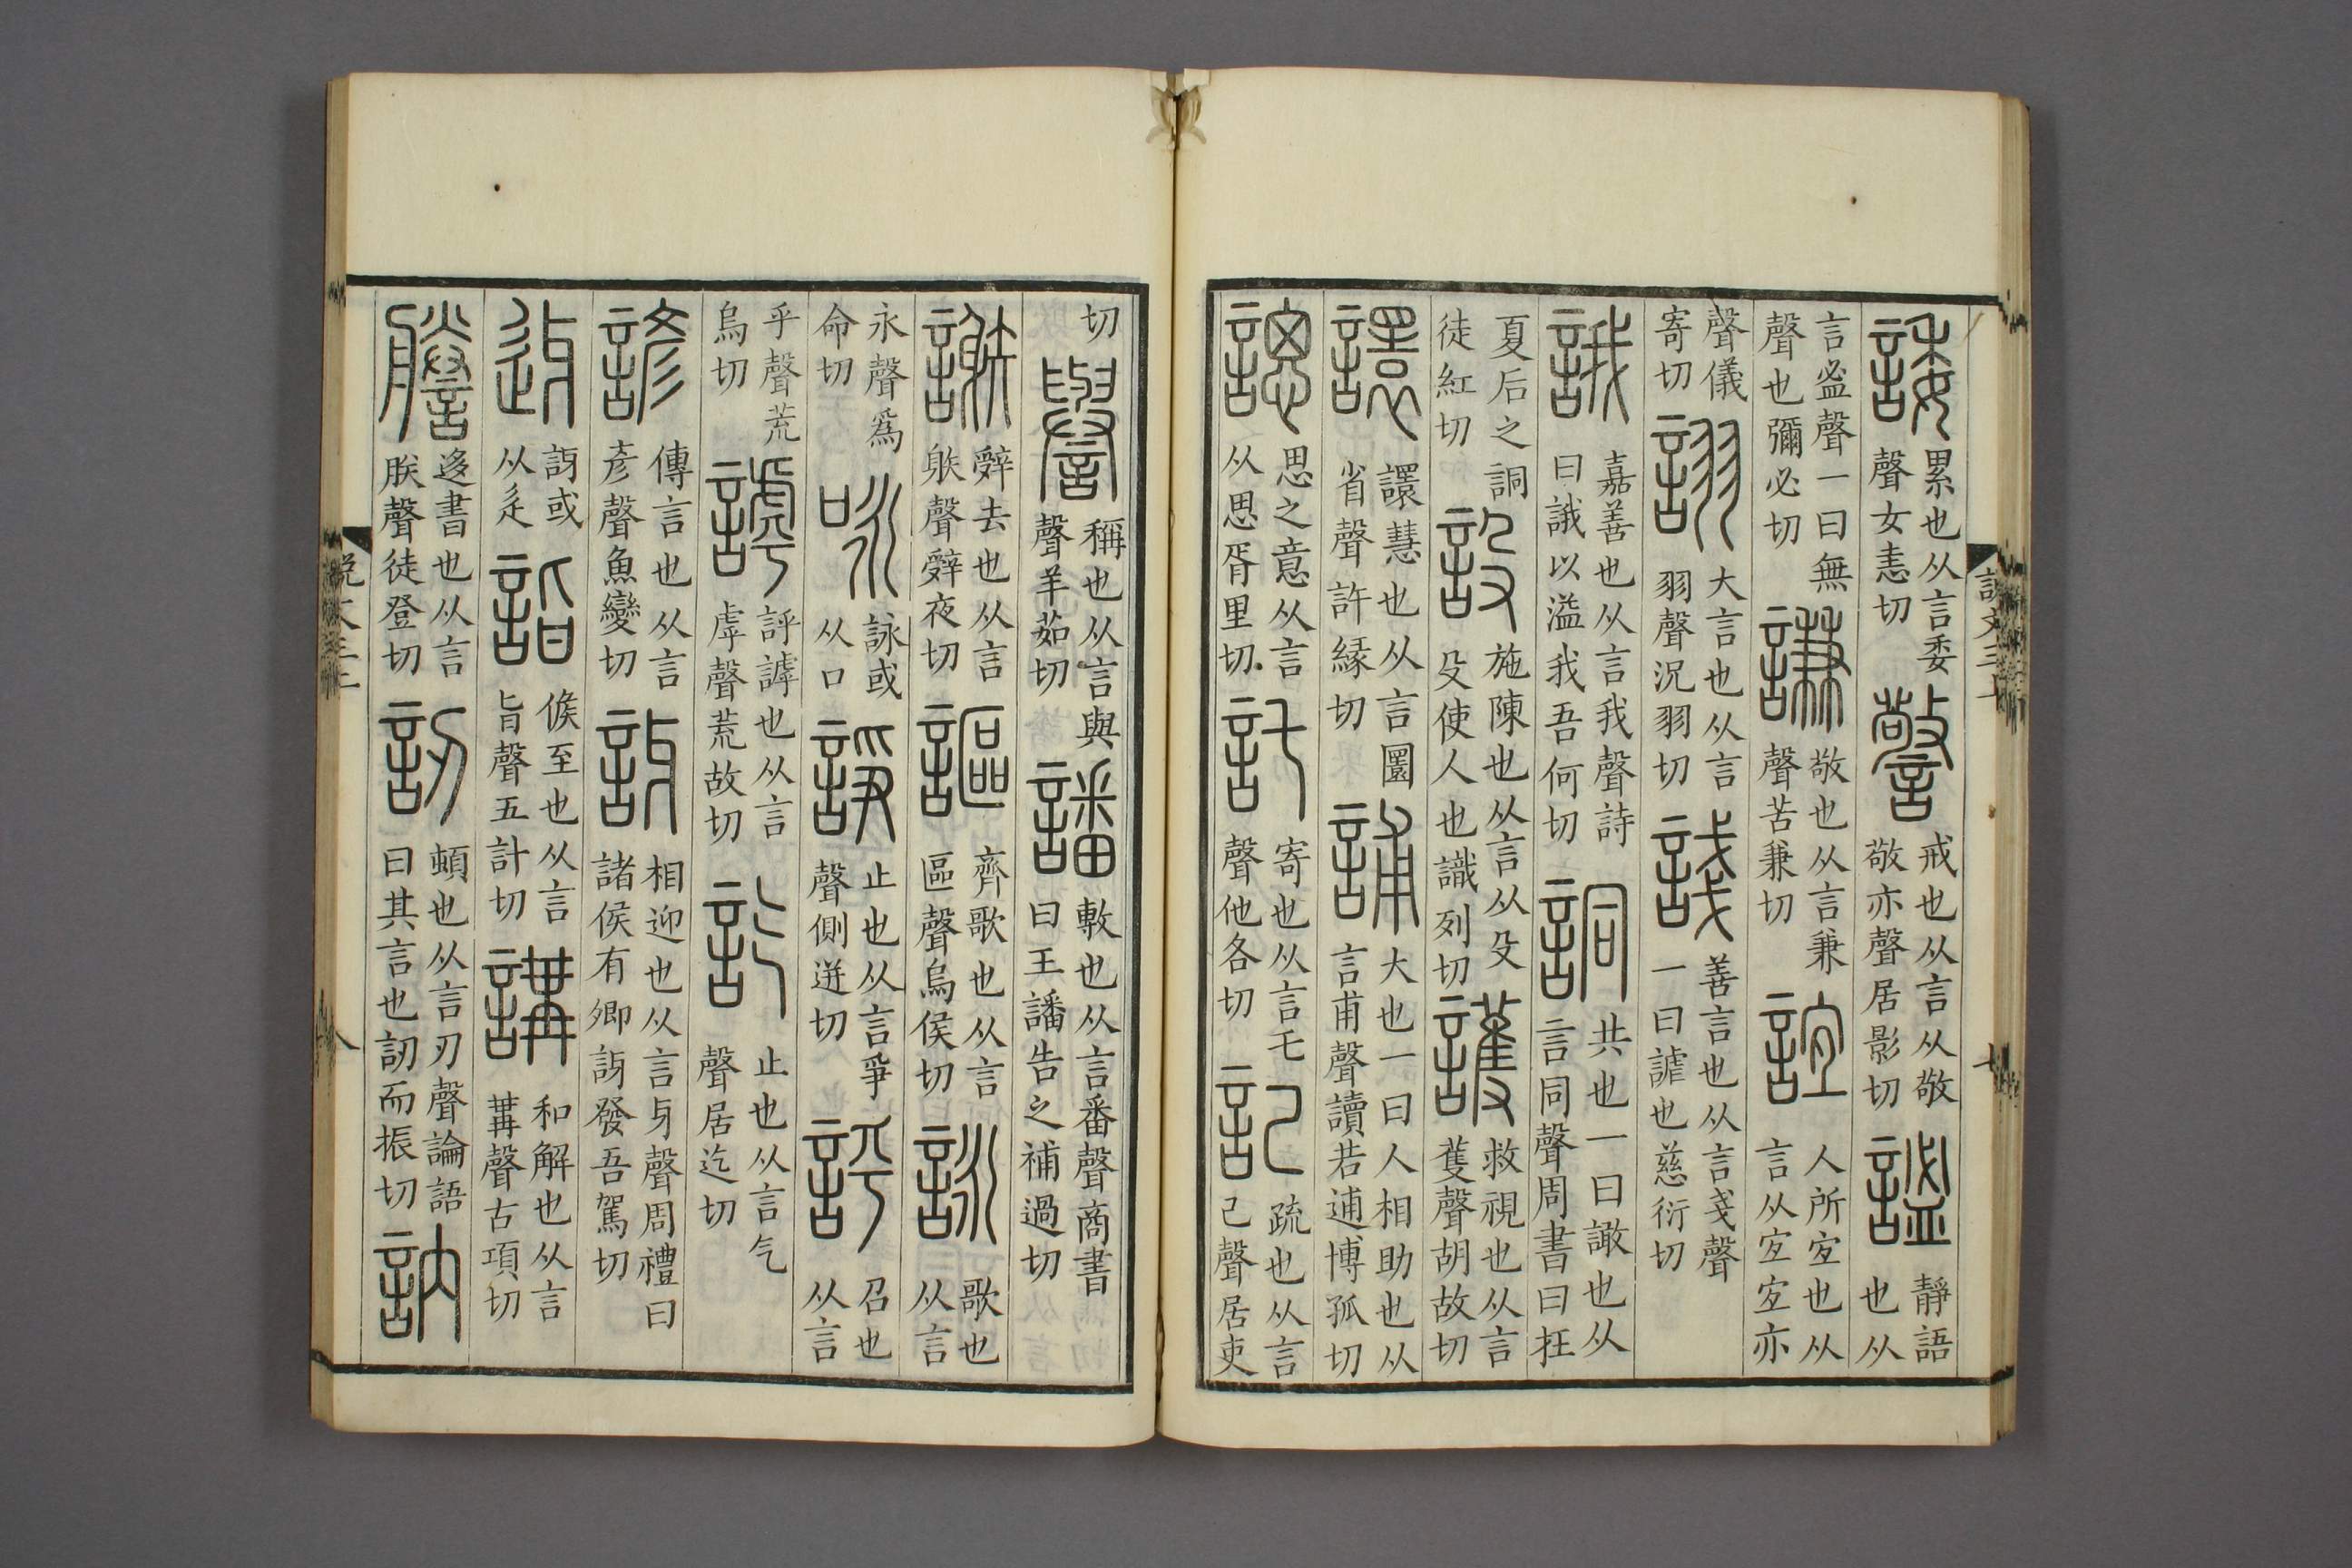 說文三上 七
諉累也从言委聲女恚切警戒也从言从敬敬亦聲居影切謐靜語也从
言𥁑聲一曰無聲也彌必切謙敬也从言兼聲苦兼切誼人所宐也从言从宐宐亦
聲儀寄切詡大言也从言羽聲況羽切諓善言也从言戔聲一曰謔也慈衍切
誐嘉善也从言我聲詩曰誐以溢我吾何切詷共也一曰譀也从言同聲周書曰在
夏后之詷徒紅切設施陳也从言从殳殳使人也識列切護救視也从言蒦聲胡故切
譞譞慧也从言圜省聲許緣切誧大也一曰人相助也从言甫聲讀若逋博孤切
諰思之意从言从思胥里切.託寄也从言乇聲他各切記疏也从言己聲居吏
切譽稱也从言與聲羊茹切譒敷也从言番聲商書曰王譒告之補過切
謝辤去也从言䠶聲辤夜切謳齊歌也从言區聲烏侯切詠歌也从言
永聲爲命切咏詠或从口諍止也从言爭聲側迸切𧦝召也从言
乎聲荒烏切謼𧦝謼也从言虖聲荒故切訖止也从言气聲居迄切
諺傳言也从言彥聲魚變切訝相迎也从言牙聲周禮曰諸侯有卿訝發吾駕切
迓訝或从辵詣候至也从言旨聲五計切講和解也从言冓聲古項切
謄迻書也从言朕聲徒登切訒頓也从言刃聲論語曰其言也訒而振切訥
說文三上 八